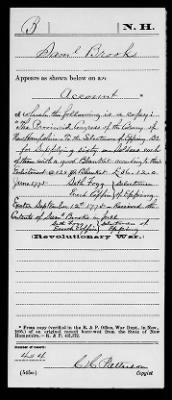 B N. H.
Sam'l Brooks
Appears as shown below on an
Account
of which the following is a copy:
"The Provincial Congress of the Colony of
New Hampshire to the Selectmen of Epping Dr
for Supplying Sixty one Soldiers each
of them with a good Blanket according to their
Enlistment @ 12/ pr Blanket £36.12.0
June 1775 Seth Fogg Selectmen
Enoch Coffin of Epping
Exeter September 12th 1775 - Received the
Contents of Sam'l Brooks in full
Seth Fogg Selectmen of
Enoch Coffin Epping
(Revolutionary War.)
* From copy (verified in the R. & P. Office, War Dept., in Nov.,
of an original record borrowed from the State of
New Hampshire.—R. & P.
Number of record:
C. C. Patterson
Copyist.